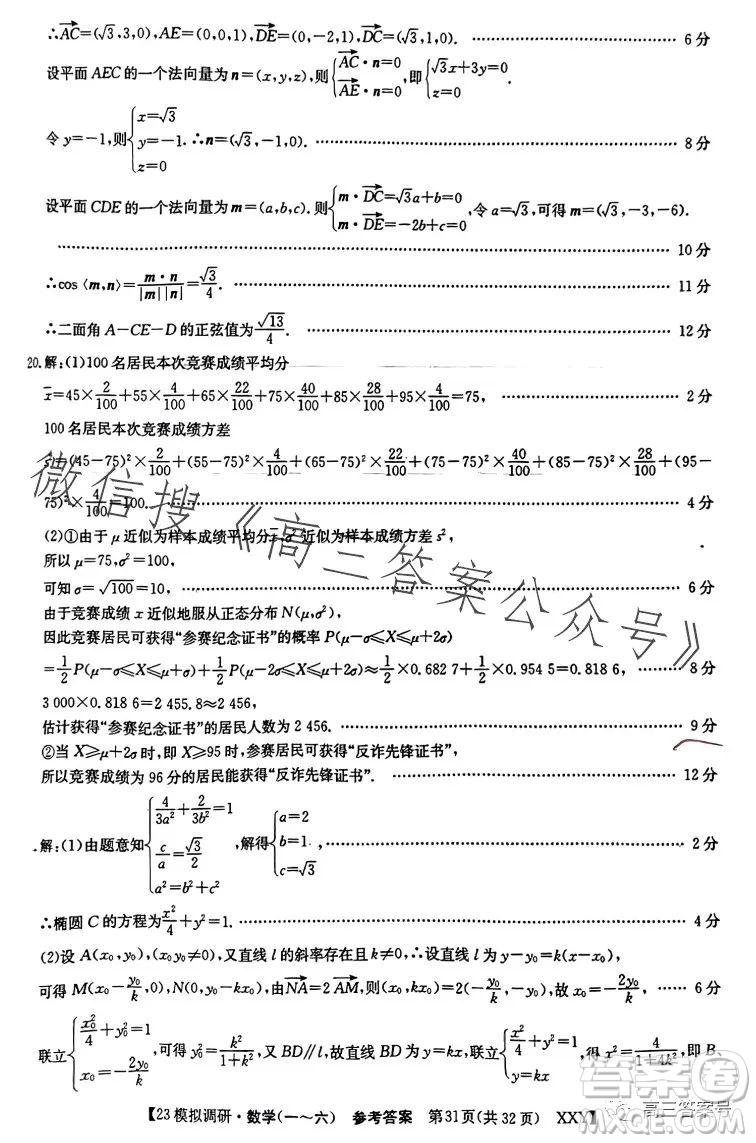 ∴AC=(√3,3,0),AE=(0,0,1),DE=(√3,-2,1),DC=(√3,1,0). 6分
设平面 AEC 的一个法向量为 n=(x,y,z),则{AC·n=0 AE·n=0,即{√3x+3y=0 z=0
令 y=-1,则{x=√3 y=-1. z=0 ∴n=(√3,-1,0). 8分
设平面 CDE 的一个法向量为 m=(a,b,c).则{m·DC=√3a+b=0 m·DE=-2b+c=0,令 a=√3,可得 m=(√3,-3,-6).
10分
∴cos⟨m,n⟩=m·n/|m||n|=√3/4. 11分
∴二面角 A-CE-D 的正弦值为√13/4. 12分
20.解:(1)100 名居民本次竞赛成绩平均分
x=45×2/100+55×4/100+65×22/100+75×40/100+85×28/100+95×4/100=75, 2分
100 名居民本次竞赛成绩方差
s²=(45-75)²×2/100+(55-75)²×4/100+(65-75)²×22/100+(75-75)²×40/100+(85-75)²×28/100+(95-
75)²×4/100=100. 4分
(2)①由于 μ 近似为样本成绩平均分x,σ² 近似为样本成绩方差 s²,
所以 μ=75,σ²=100,
可知 σ=√100=10, 6分
由于竞赛成绩 x 近似地服从正态分布 N(μ,σ²),
因此竞赛居民可获得“参赛纪念证书”的概率 P(μ-σ≤X≤μ+2σ)
=1/2P(μ-σ≤X≤μ+σ)+1/2P(μ-2σ≤X≤μ+2σ)≈1/2×0.682 7+1/2×0.954 5=0.818 6, 8分
3 000×0.818 6=2 455.8≈2 456,
估计获得“参赛纪念证书”的居民人数为 2 456. 9分
②当 X≥μ+2σ 时,即 X≥95 时,可获得“反诈先锋证书”,
所以竞赛成绩为 96 分的居民能获得“反诈先锋证书”. 12分
解:(1)由题意知{4/3a²+2/3b²=1 c/a=√3/2 a²=b²+c²,解得{a=2 b=1. c=√3 2分
∴椭圆 C 的方程为x²/4+y²=1. 4分
(2)设 A(x₀,y₀),(x₀y₀≠0),又直线 l 的斜率存在且 k≠0,∴设直线 l 为 y-y₀=k(x-x₀),
可得 M(x₀-y₀/k,0),N(0,y₀-kx₀),由NA=2AM,则(x₀,kx₀)=2(-y₀/k,-y₀),故 x₀=-2y₀/k, 6分
联立{x₀²/4+y₀²=1 x₀=-2y₀/k 可得 y₀²=k²/1+k²,又 BD∥l,故直线 BD 为 y=kx,联立{x²/4+y²=1, y=kx 得 x²=4/1+4k²,即 B、
【23 模拟调研·数学(一~六) 参考答案 第 31 页(共 32 页) XXY】
微信搜《高三答案公众号》
答案圈
高三答案号